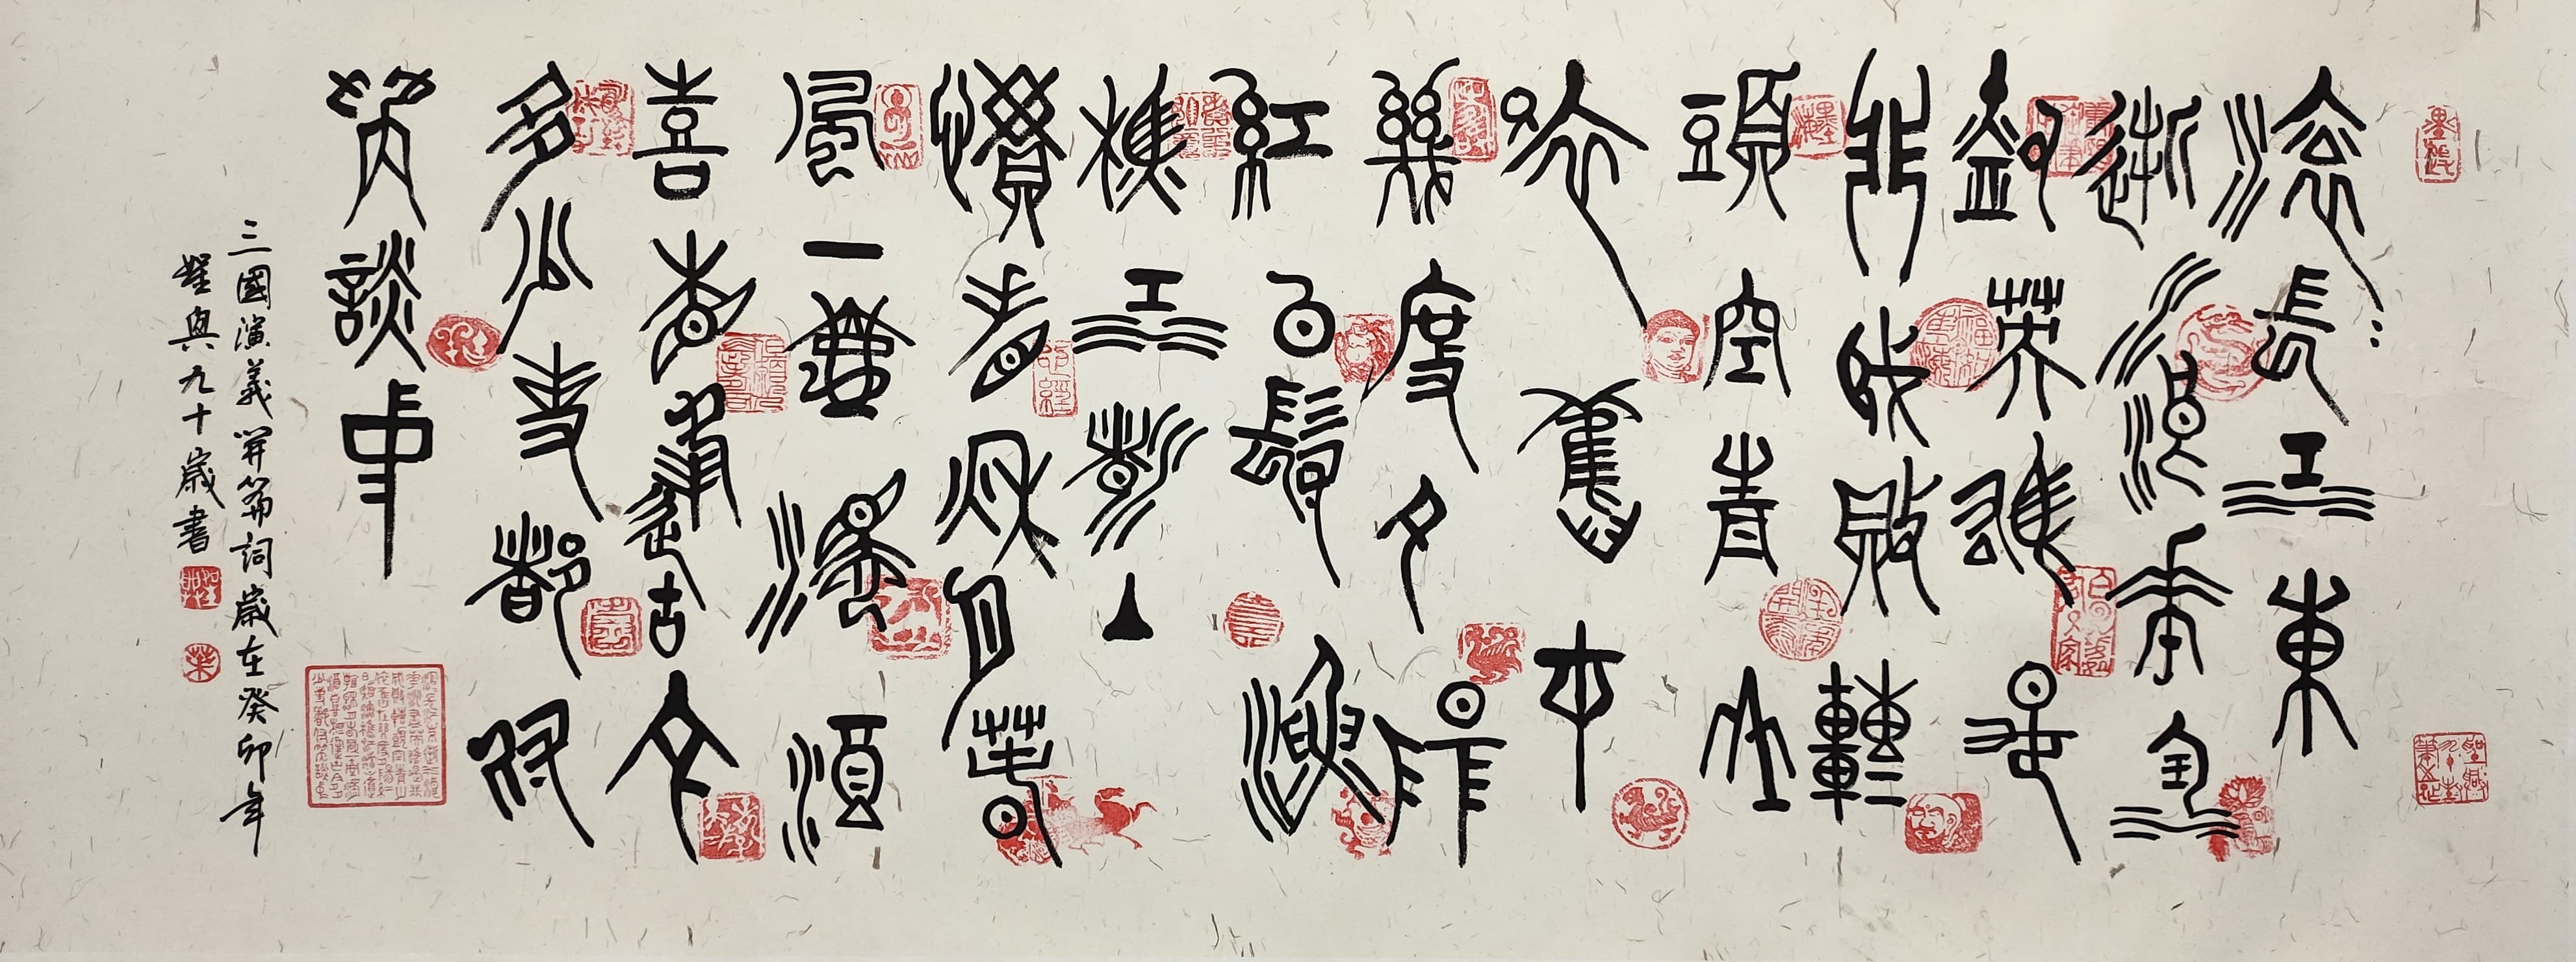 滾〻長江東
逝水浪花淘
盡英雄是
非成敗轉
頭空青山
依舊在
幾度夕陽
紅白髮漁
樵江渚上
慣看秋月春
風一壺濁酒
喜相逢古今
多少事都付
笑談中
三國演義開篇詞歲在癸卯年
九十歲書